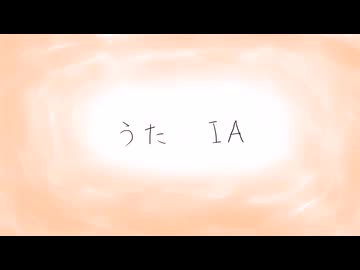 うた　IA